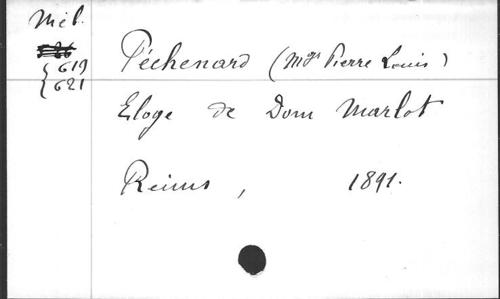 Mél.
619
621
Péchenard (Mgr Pierre Louis)
Eloge de Dom Marlot
Reims, 1891.